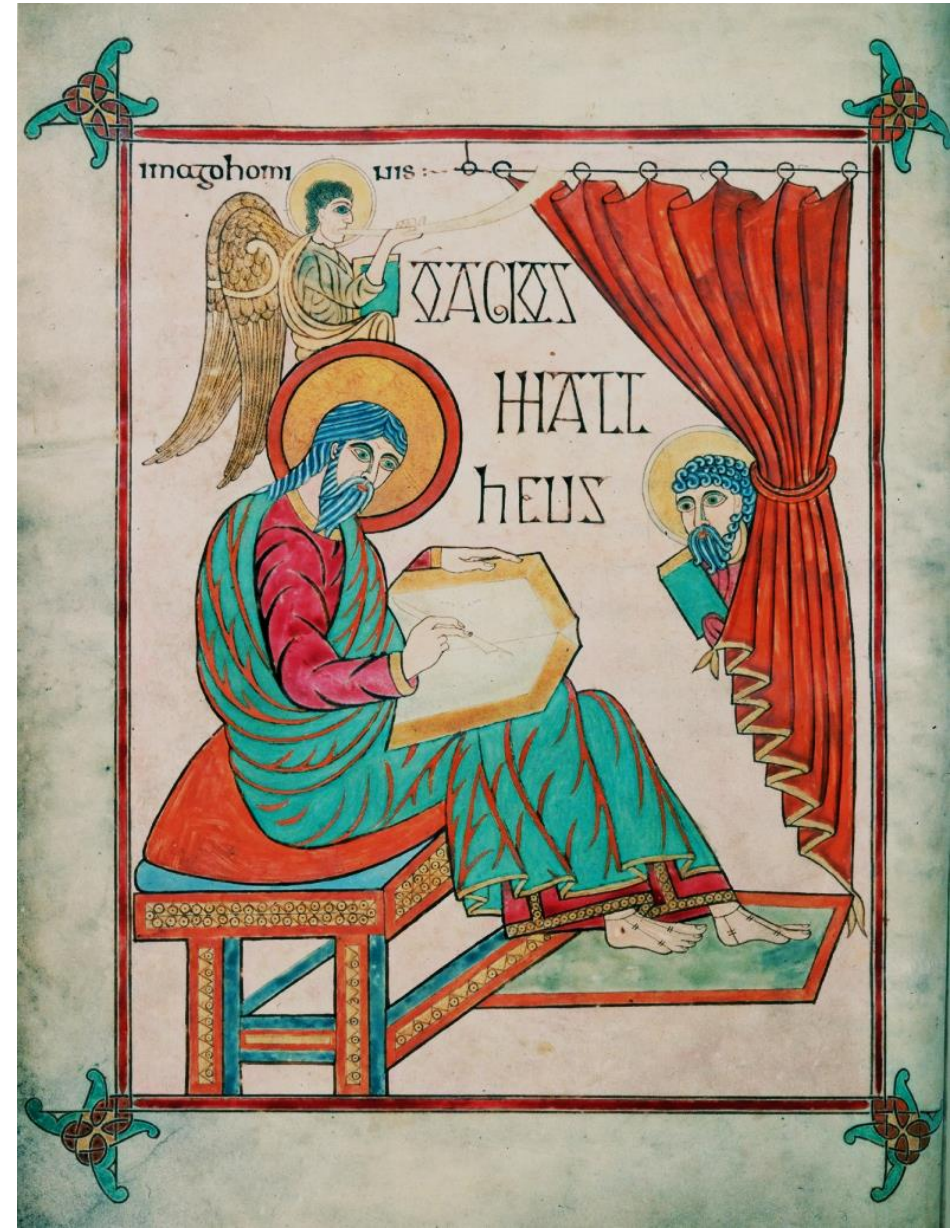 imago homi nis
O AGIOS
MATT
heus